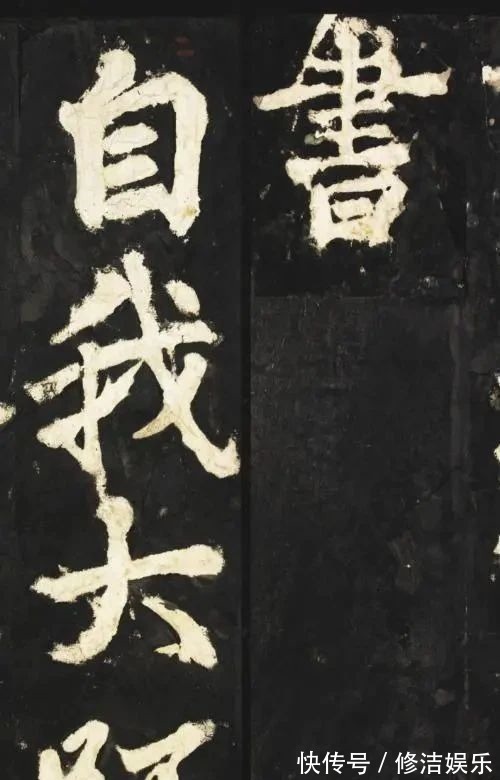 書
自我大
快传号/修洁娱乐